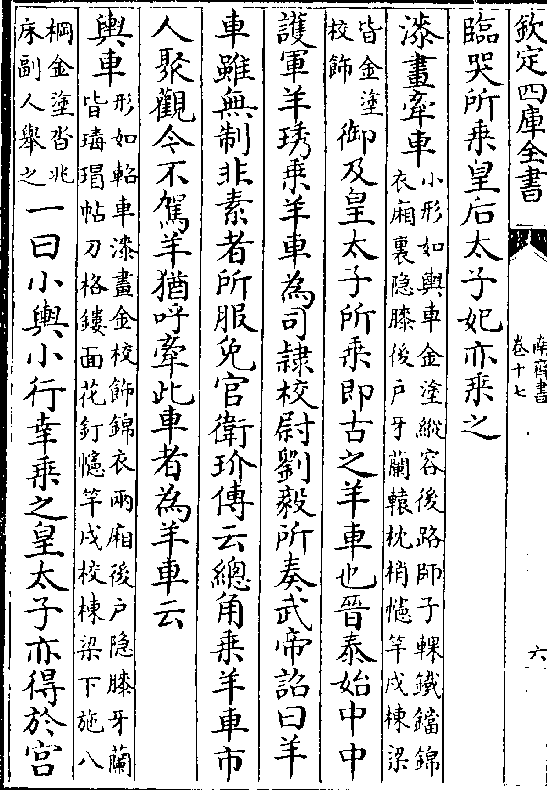 欽定四庫全書
南齊書
卷十七
六
臨哭所乗皇后太子妃亦乗之
漆畫牽車小形如輿車金塗縱容後路師子輠鐵鐺錦
衣廂裏隐膝後戸牙蘭轅枕梢幰竿戍棟梁
皆金塗
校飾御及皇太子所乗即古之羊車也晉泰始中中
護軍羊琇乗羊車為司𨽻校尉劉毅所奏武帝詔曰羊
車雖無制非素者所服免官衛玠傳云總角乗羊車市
人聚觀今不駕羊猶呼牽此車者為羊車云
輿車形如軺車漆畫金校飾錦衣兩廂後戸隐膝牙蘭
皆瑇瑁帖刀格鏤面花釘幰竿戍校棟梁下施八
棡金塗沓兆
床副人舉之一曰小輿小行幸乗之皇太子亦得於宫